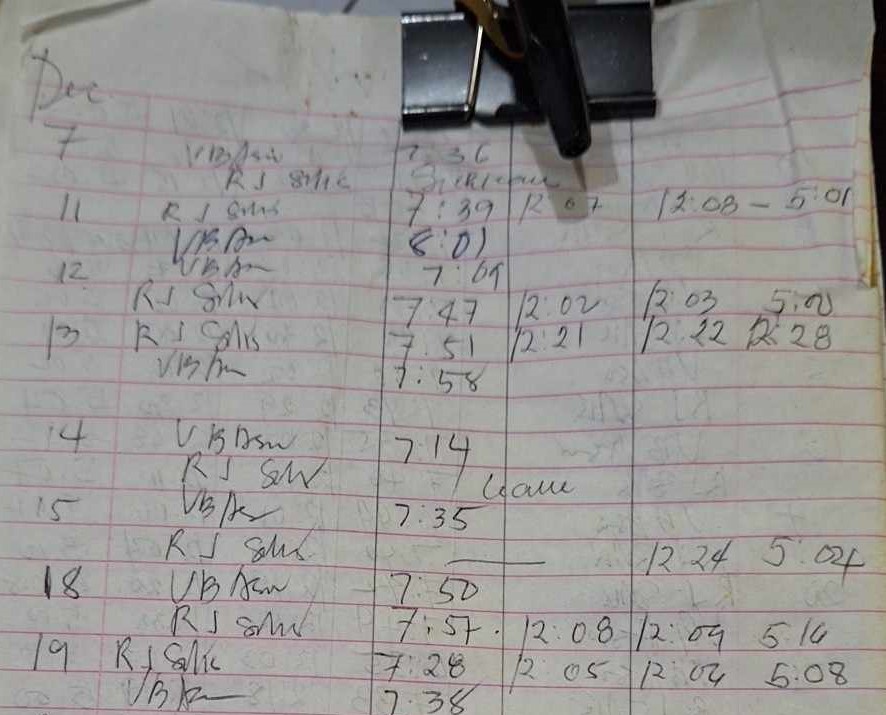 Dec
7 VBAsn 7:36
RJ Solis Sick leave
11 RJ Solis 7:39 12:07 12:08 - 5:01
VBAsn 8:01
12 VBAsn 7:09
RJ Solis 7:47 12:02 12:03 5:00
13 RJ Solis 7:51 12:21 12:22 12:28
VBAsn 7:58
14 VBAsn 7:14
RJ Solis Leave
15 VBAsn 7:35
RJ Solis — 12:24 5:04
18 VBAsn 7:50
RJ Solis 7:57. 12:08 12:09 5:16
19 RJ Solis 7:28 12:05 12:06 5:08
VBAsn 7:38